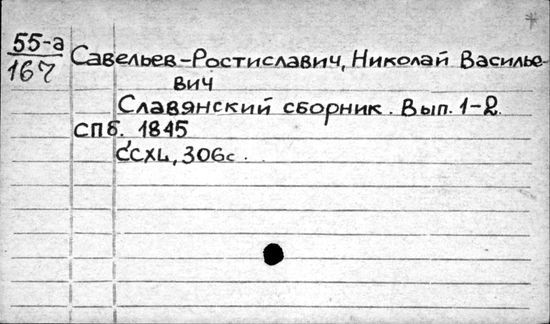 55-а
167
Савельев-Ростиславич, Николай Василье-
вич
Славянский сборник. Вып. 1-2.
СПб. 1845
CCXL, 306с.